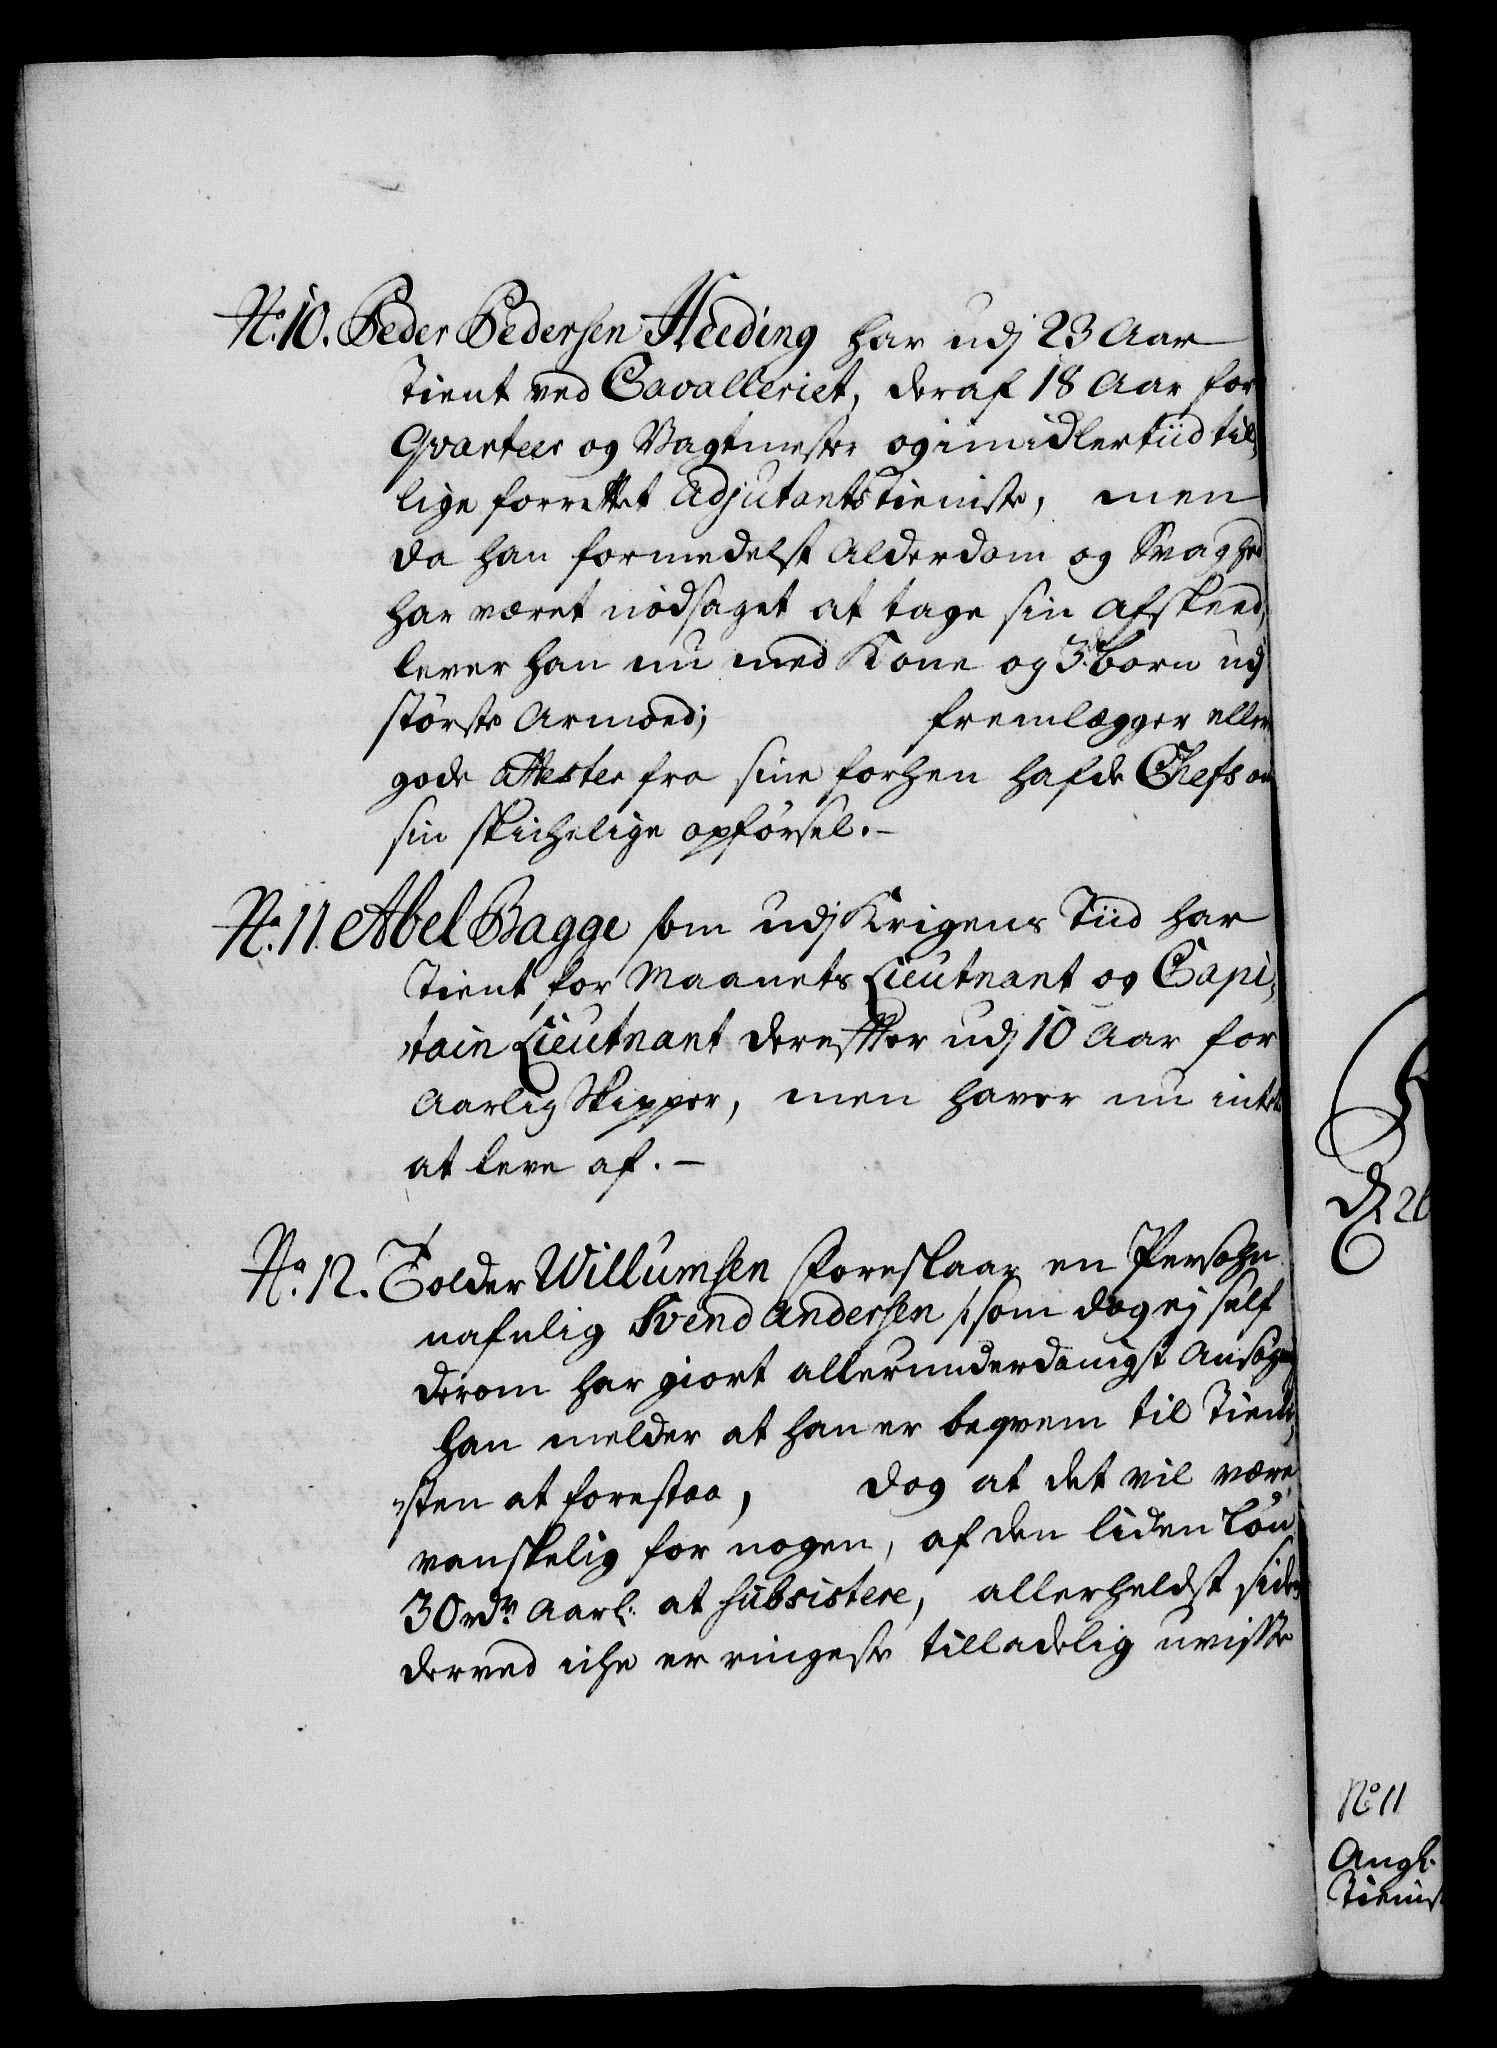 No. 10. Peder Pedersen Heeding har udj 23 Aar
Tient ved Cavalleriet, deraf 18 Aar for
Qvarteer og Vagtmester og imidlertiid til,
lige forrettet Adjutants tieniste, men
da han formedelst Alderdom og Svaghed
har været nødsaget at tage sin Afskeed,
lever han nu med Kone og 3de born udj
største Armoed; fremlægger ellers
gode Attester fra sine forhen hafde Chefs om
sin skichelige opførsel. -
No. 11. Abel Bagge som udj Krigens Tiid har
Tient for Maanets Lieutnant og Capi,
tain Lieutnant derefter udj 10 Aar for
Aarlig Skipper, men haver nu intet
at leve af. -
No. 12. Tolder Willumsen foreslaar en Persohn
nafnlig Svend Andersen /: som dog ej self
derom har giort allerunderdanigst Ansøgn
han melder at han er beqvem til Tieni,
sten at forestaa, dog at det vil være
vanskelig for nogen, af den liden Løn
30 rdr Aarl: at subsistere, allerheldst siden
derved iche er ringeste tilladelig uvisse
No 11
Angl.
Tienist